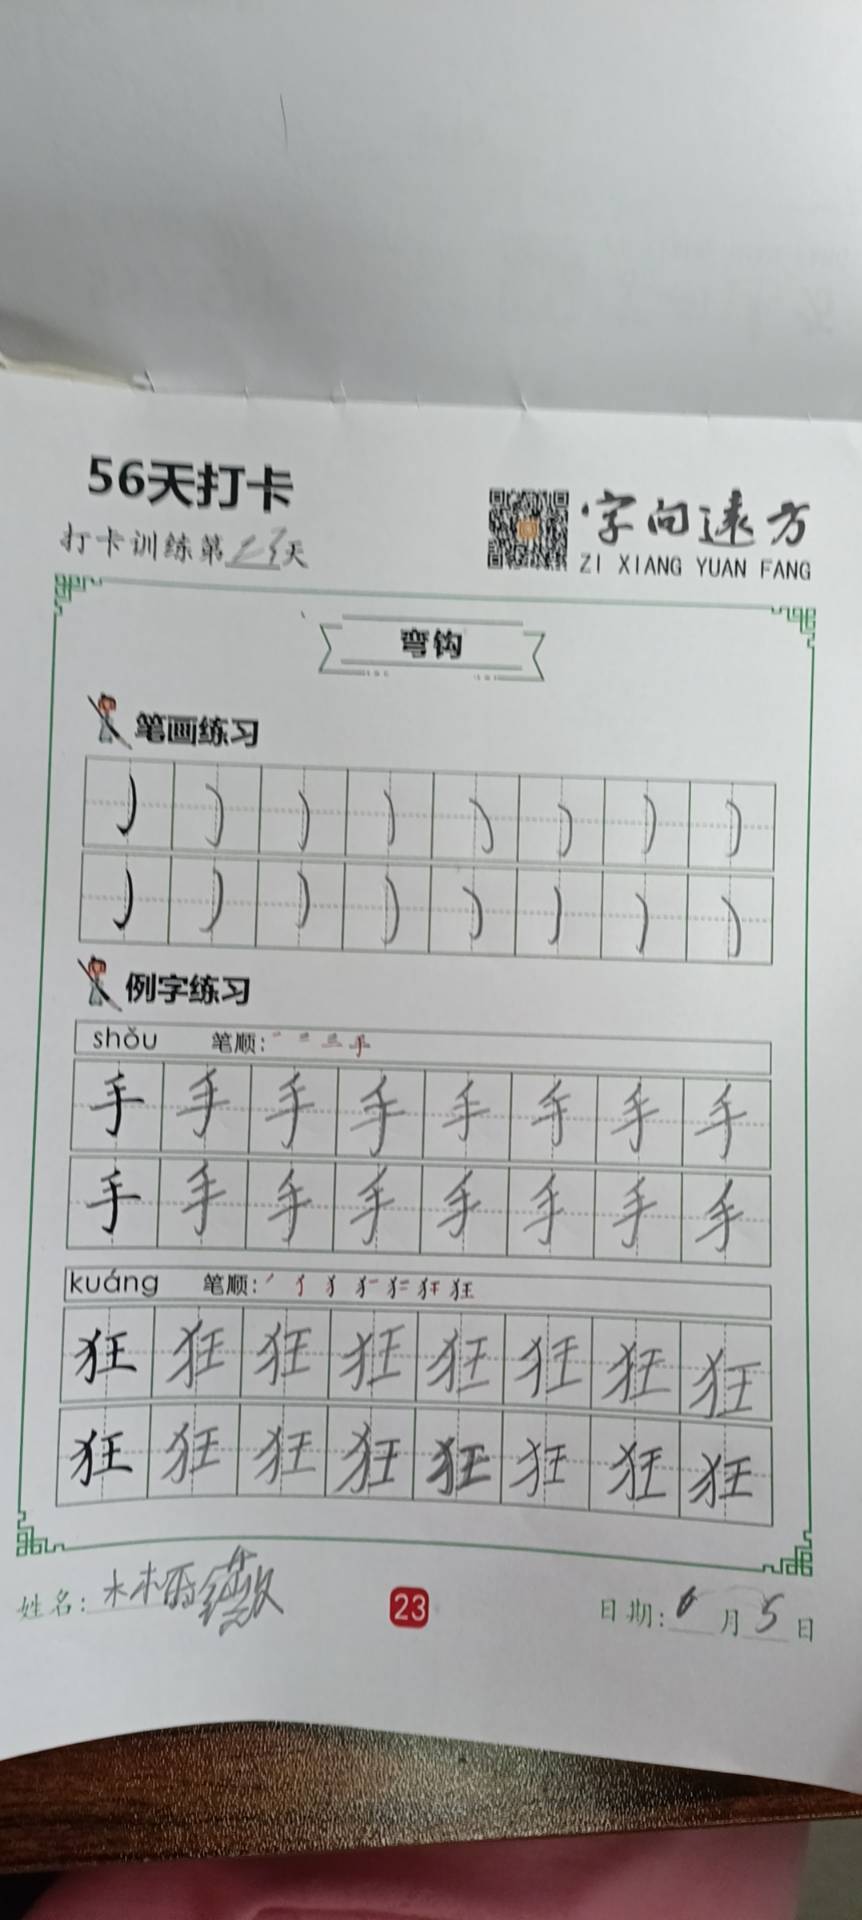 56天打卡
打卡训练第23天
字向远方
ZI XIANG YUAN FANG
弯钩
笔画练习
例字练习
shǒu 笔顺: 手
手 手 手 手 手 手 手 手
手 手 手 手 手 手 手 手
kuáng 笔顺: 狂
狂 狂 狂 狂 狂 狂 狂 狂
狂 狂 狂 狂 狂 狂 狂 狂
姓名:
23
日期: 6月5日